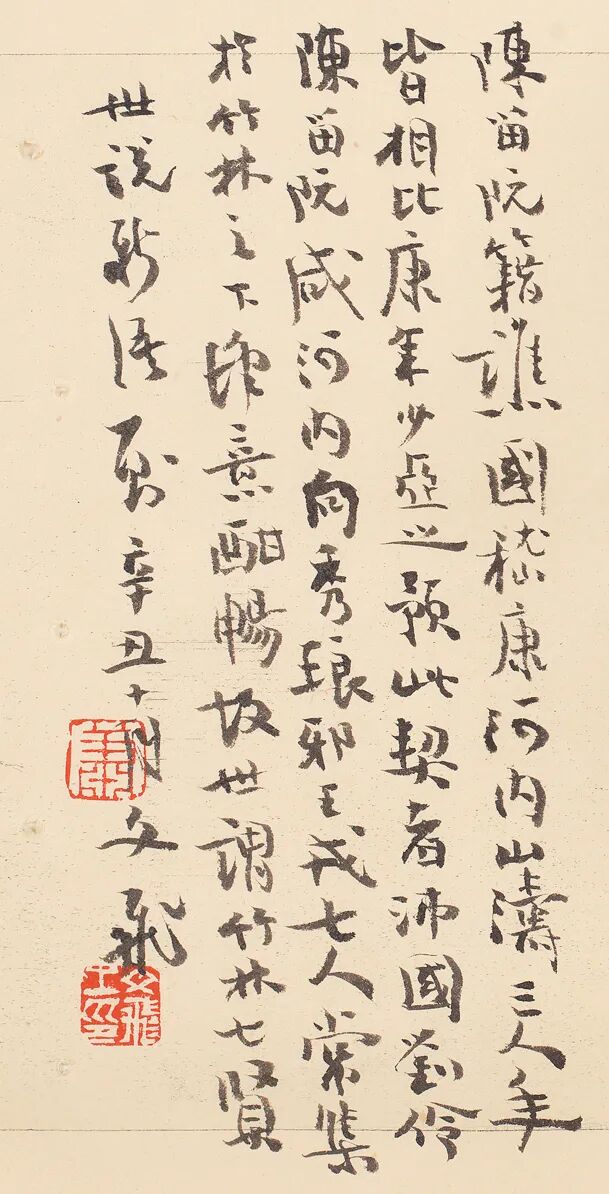 陳留阮籍譙國嵇康河內山濤三人年
皆相比康年少亞之預此契者沛國劉伶
陳留阮咸河內向秀琅邪王戎七人常集
於竹林之下肆意酣暢故世謂竹林七賢
世說新語 辛丑十月文飛
蕭
文飛